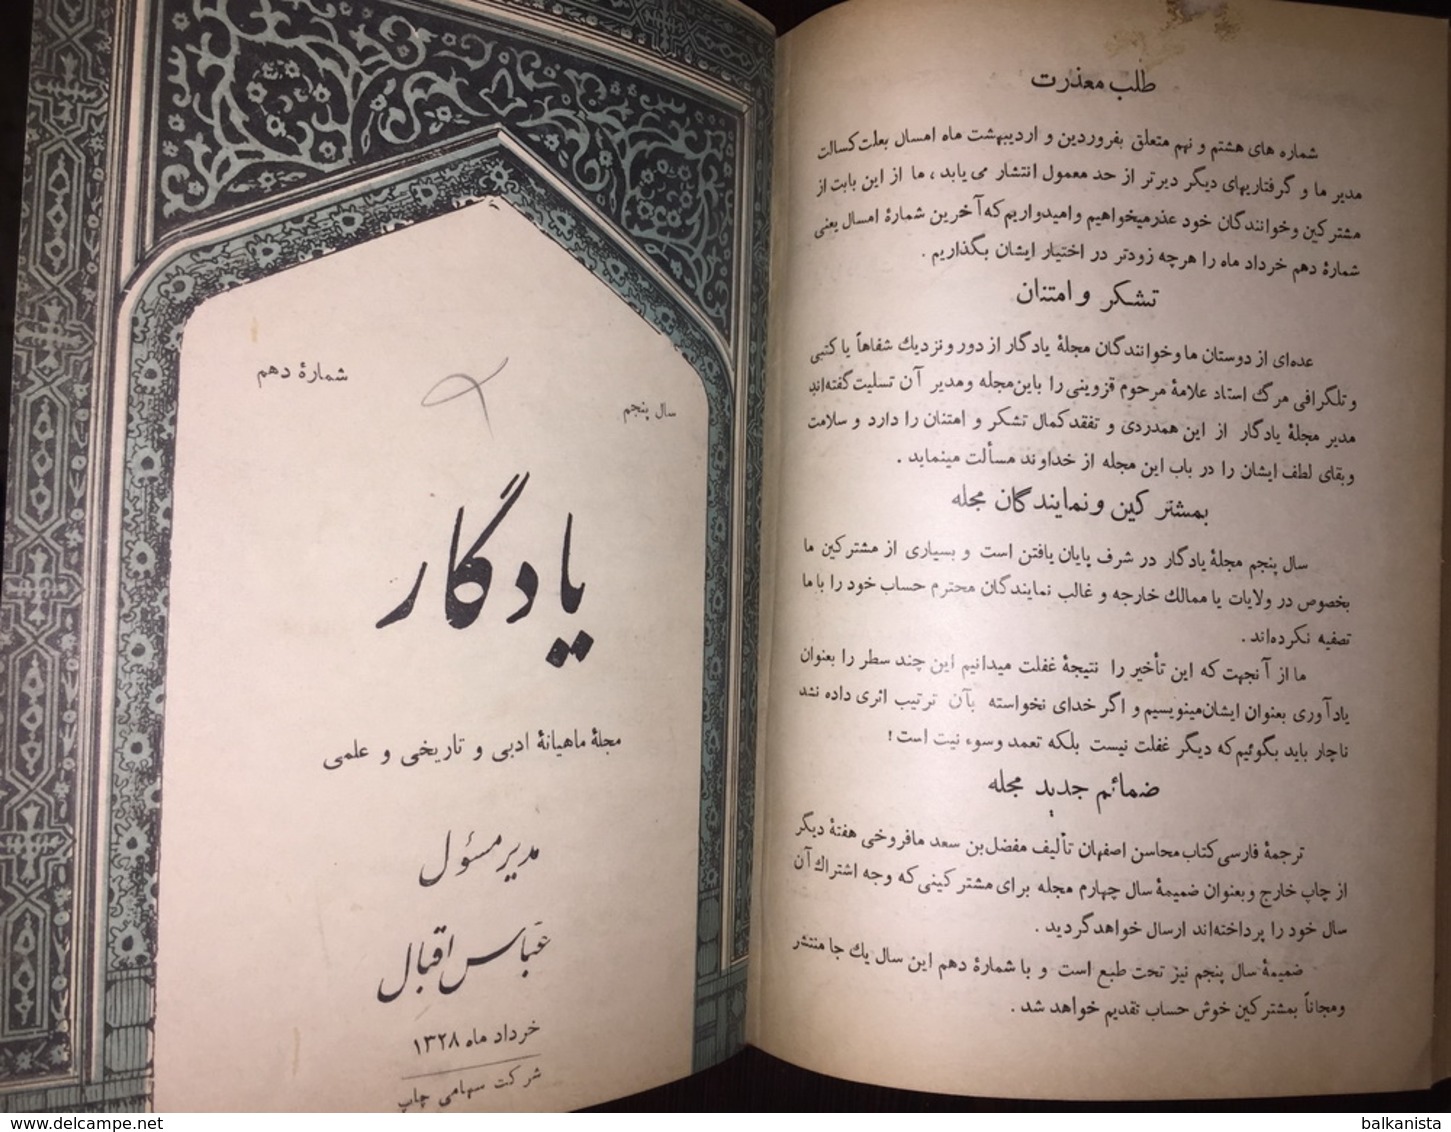 طلب معذرت
شماره های هشتم و نهم متعلق بفروردین و اردیبهشت ماه امسال بعلت کسالت
مدیر ما و گرفتاریهای دیگر دیرتر از حد معمول انتشار می یابد ، ما از این بابت از
مشترکین و خوانندگان خود عذر میخواهیم و امیدواریم که آخرین شمارهٔ امسال یعنی
شمارهٔ دهم خرداد ماه را هرچه زودتر در اختیار ایشان بگذاریم .
تشکر و امتنان
عده‌ای از دوستان ما و خوانندگان مجلهٔ یادگار از دور و نزدیك شفاهاً یا کتبی
و تلگرافی مرگ استاد علامهٔ مرحوم قزوینی را باین مجله و مدیر آن تسلیت گفته‌اند
مدیر مجلهٔ یادگار از این همدردی و تفقد کمال تشکر و امتنان را دارد و سلامت
و بقای لطف ایشان را در باب این مجله از خداوند مسألت مینماید .
بمشترکین و نمایندگان مجله
سال پنجم مجلهٔ یادگار در شرف پایان یافتن است و بسیاری از مشترکین ما
بخصوص در ولایات یا ممالك خارجه و غالب نمایندگان محترم حساب خود را با ما
تصفیه نکرده‌اند .
ما از آنجهت که این تأخیر را نتیجهٔ غفلت میدانیم این چند سطر را بعنوان
یادآوری بعنوان ایشان مینویسیم و اگر خدای نخواسته بآن ترتیب اثری داده نشد
ناچار باید بگوئیم که دیگر غفلت نیست بلکه تعمد و سوء نیت است !
ضمائم جدید مجله
ترجمهٔ فارسی کتاب محاسن اصفهان تألیف مفضل بن سعد مافروخی هفتهٔ دیگر
از چاپ خارج و بعنوان ضمیمهٔ سال چهارم مجله برای مشترکینی که وجه اشتراك آن
سال خود را پرداخته‌اند ارسال خواهد گردید .
ضمیمهٔ سال پنجم نیز تحت طبع است و با شمارهٔ دهم این سال یك جا منتشر
و مجاناً بمشترکین خوش حساب تقدیم خواهد شد .
شمارهٔ دهم
سال پنجم
یادگار
مجلهٔ ماهیانهٔ ادبی و تاریخی و علمی
مدیر مسؤل
عباس اقبال
خرداد ماه ۱۳۲۸
شرکت سهامی چاپ
http://www.delcampe.net
balkanista